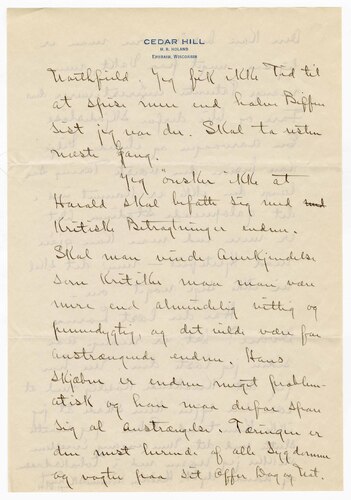 CEDAR HILL
M. B. HOLAND
EPHRAIM, WISCONSIN
Northfield. Jeg fik ikke Tid til
at spise mere end halve Biffen
sist jeg var der. Skal ta resten
næste Gang.
Jeg ønsker ikke at
Harald skal befatte sig med
Kritiske Betragtninger endnu.
Skal man vinde Anerkjendelse
som Kritiker maa man være
mere end almindelig vittig og
og det vilde være for
anstrængende endnu. Hans
Skjæbne er endnu meget problem-
atisk og han maa derfor spare
sig al Anstrængelse. Tæringen er
den mest lurende af alle Sygdomme
og vogter paa sit Offer Dag og Nat.